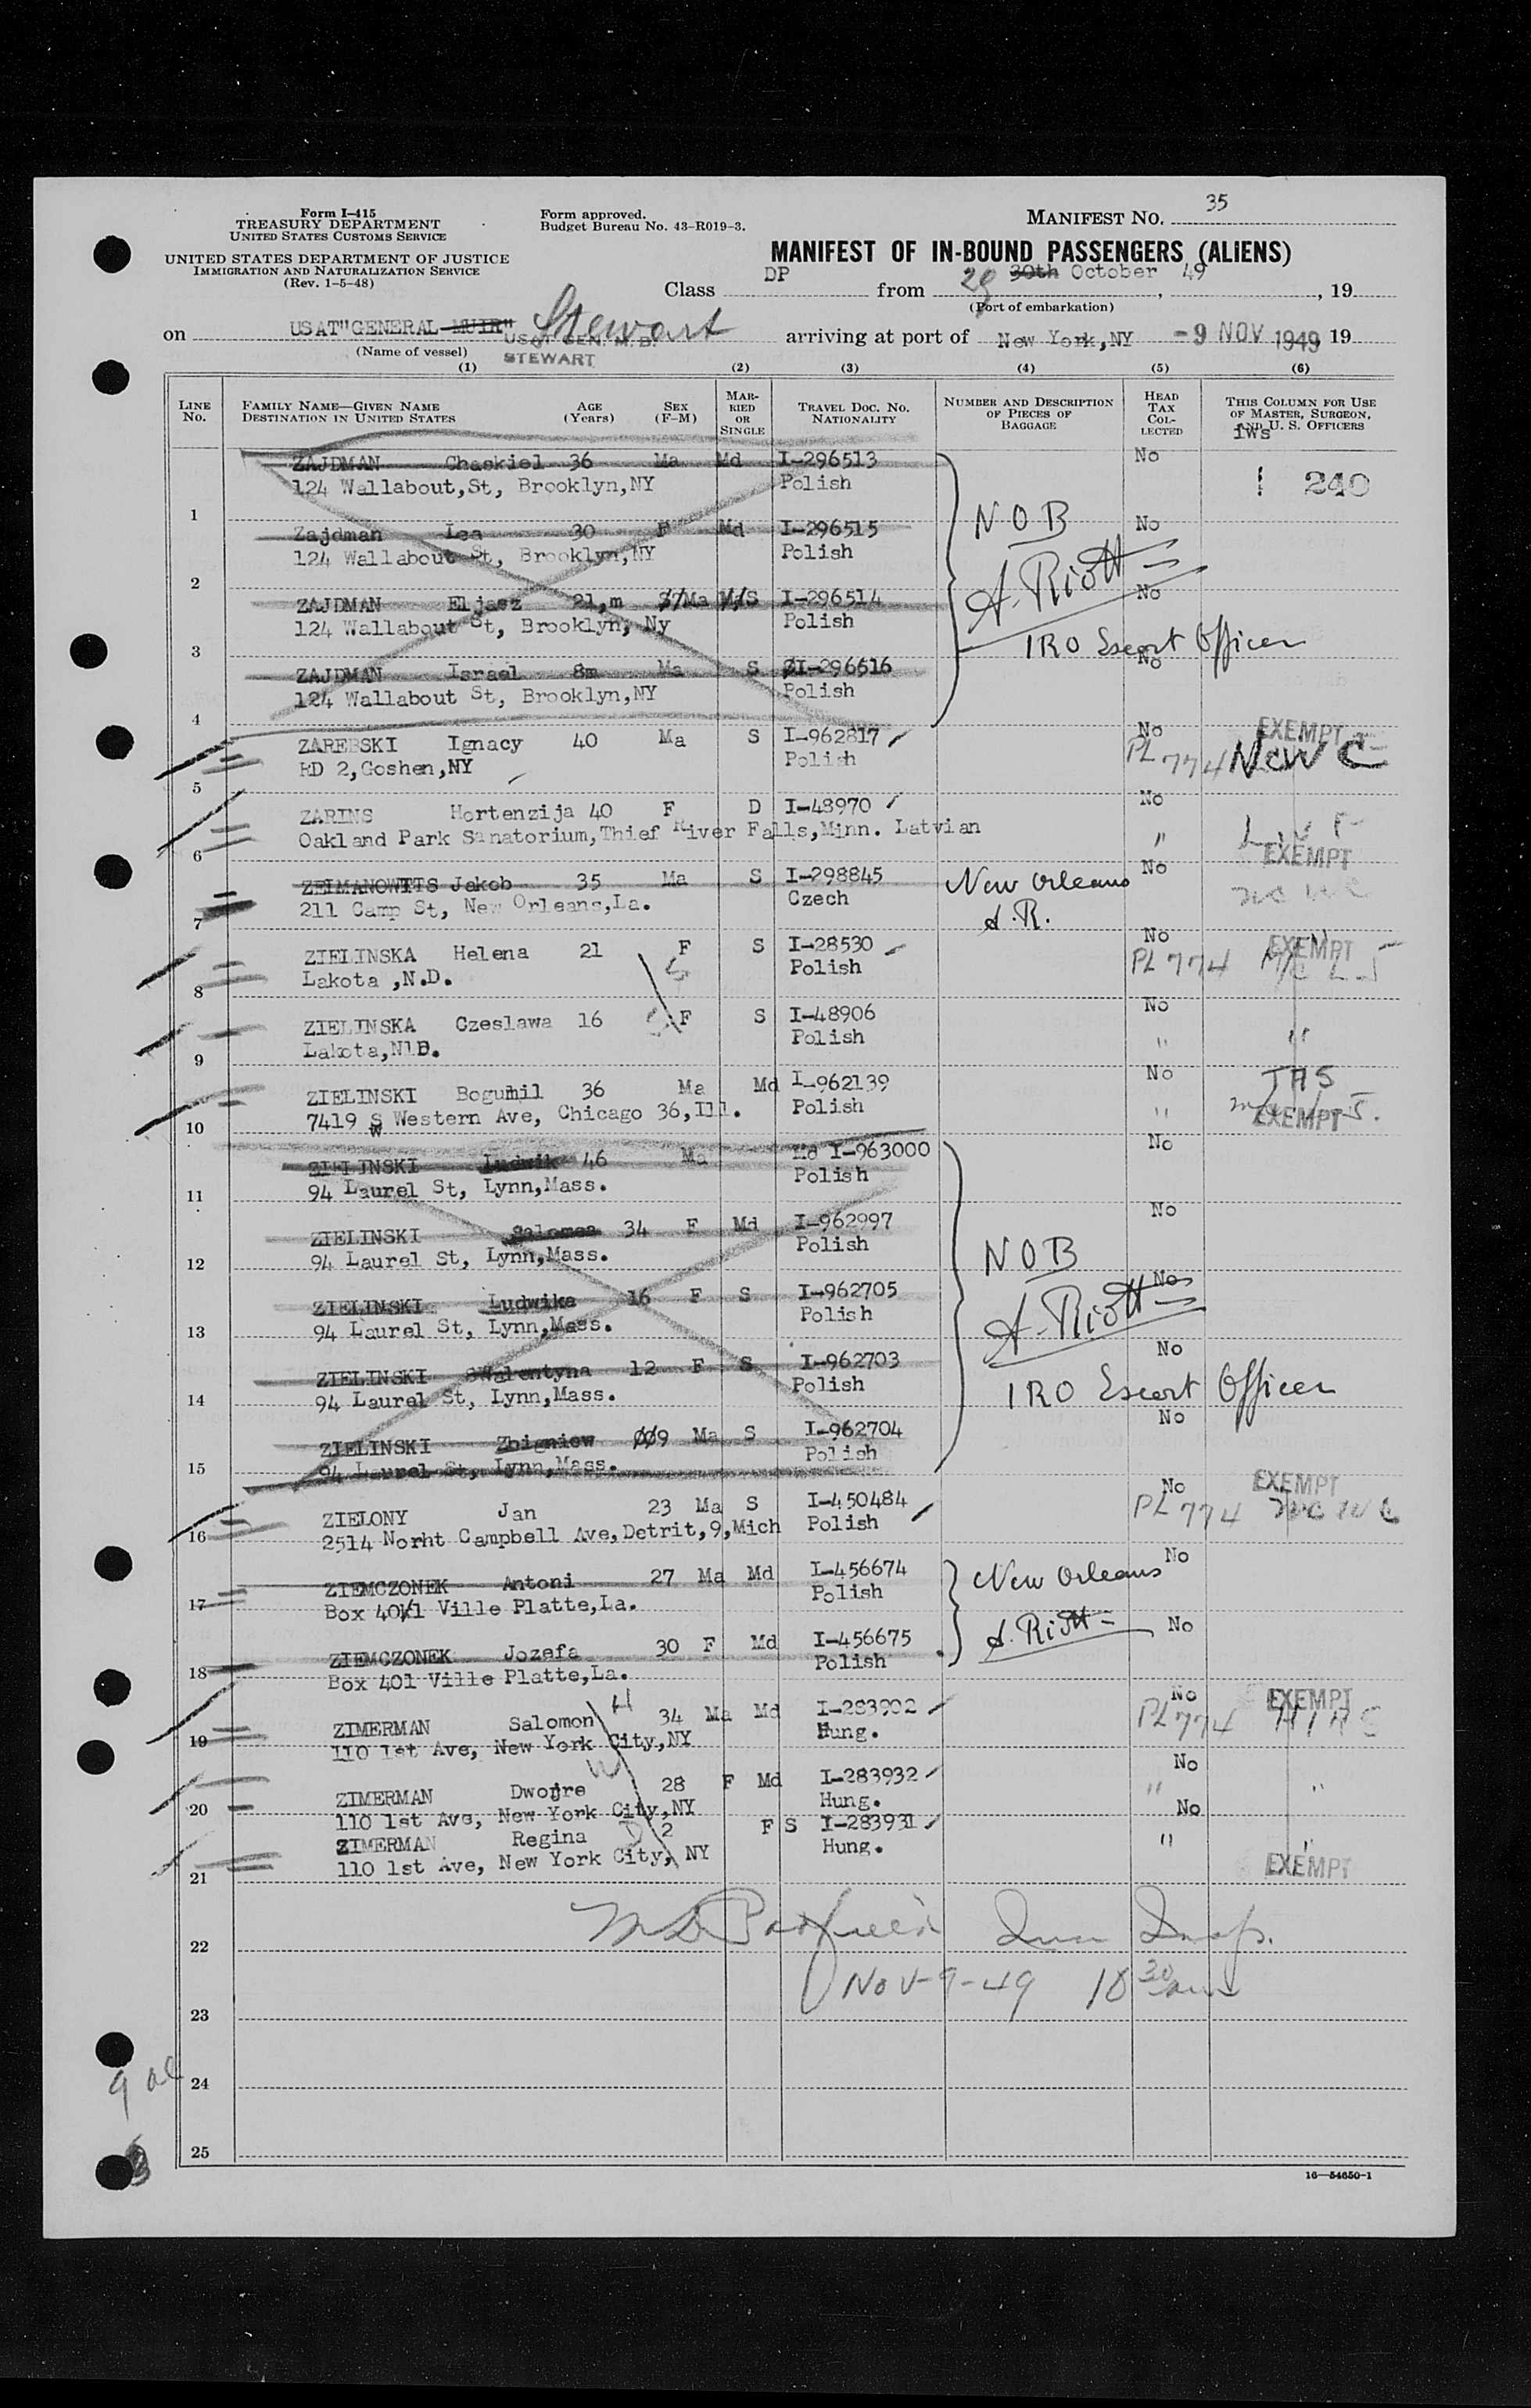 Form I-415
TREASURY DEPARTMENT
UNITED STATES CUSTOMS SERVICE
UNITED STATES DEPARTMENT OF JUSTICE
IMMIGRATION AND NATURALIZATION SERVICE
(Rev. 1-5-48)
Form approved.
Budget Bureau No. 43-R019-3.
MANIFEST NO. 35
MANIFEST OF IN-BOUND PASSENGERS (ALIENS)
Class DP from 29 30th October 49, 19
(Port of embarkation)
on USAT"GENERAL MUIR" Stewart arriving at port of New York,NY -9 NOV 1949 19
(Name of vessel) USAT GEN. M.B.
STEWART
(1) (2) (3) (4) (5) (6)
LINE No. FAMILY NAME—GIVEN NAME DESTINATION IN UNITED STATES AGE (Years) SEX (F-M) MARRIED OR SINGLE TRAVEL DOC. NO. NATIONALITY NUMBER AND DESCRIPTION OF PIECES OF BAGGAGE HEAD TAX COLLECTED THIS COLUMN FOR USE OF MASTER, SURGEON, AND U. S. OFFICERS
iws
ZAJDMAN Chaskiel 36 Ma Md I-296513 No
124 Wallabout,St, Brooklyn,NY Polish 240
1
NOB
Zajdman Lea 30 F Md I-296515 No
124 Wallabout St, Brooklyn,NY Polish
2
A. Riott
ZAJDMAN Eljasz 21,m Ma S I-296514 No
124 Wallabout St, Brooklyn, Ny Polish
3
IRO Escort Officer
ZAJDMAN Israel 8m Ma S I-296516 No
124 Wallabout St, Brooklyn,NY Polish
4
ZAREBSKI Ignacy 40 Ma S I-962817 No EXEMPT
RD 2,Goshen,NY Polish PL 774 NCWC
5
ZARINS Hortenzija 40 F D I-48970 No
Oakland Park Sanatorium,Thief River Falls,Minn. Latvian "
6 EXEMPT
ZEIMANOWITS Jakob 35 Ma S I-298845 New Orleans No
211 Camp St, New Orleans,La. Czech A.R.
7
ZIELINSKA Helena 21 F S I-28530 No EXEMPT
Lakota ,N.D. Polish PL 774
8
ZIELINSKA Czeslawa 16 F S I-48906 No
Lakota,N1D. Polish " "
9
ZIELINSKI Bogumil 36 Ma Md I-962139 No
7419 S Western Ave, Chicago 36,Ill. Polish " EXEMPT
W
10
ZIELINSKI Ludwik 46 Ma Md I-963000 No
94 Laurel St, Lynn,Mass. Polish
11
ZIELINSKI Salomea 34 F Md I-962997 No
94 Laurel St, Lynn,Mass. Polish
12
NOB
ZIELINSKI Ludwika 16 F S I-962705 No
94 Laurel St, Lynn,Mass. Polish
13
A. Riott
ZIELINSKI Walentyna 12 F S I-962703 No
94 Laurel St, Lynn,Mass. Polish
14
IRO Escort Officer
ZIELINSKI Zbigniew 9 Ma S I-962704 No
94 Laurel St, Lynn,Mass. Polish
15
ZIELONY Jan 23 Ma S I-450484 No EXEMPT
2514 Norht Campbell Ave,Detrit,9,Mich Polish PL 774
16
ZIEMCZONEK Antoni 27 Ma Md I-456674 New Orleans No
Box 401 Ville Platte,La. Polish
17
ZIEMCZONEK Jozefa 30 F Md I-456675 A. Riott No
Box 401 Ville Platte,La. Polish
18
ZIMERMAN Salomon H 34 Ma Md I-283902 No EXEMPT
110 1st Ave, New York City,NY Hung. PL 774 HIAS
19
ZIMERMAN Dwojre W 28 F Md I-283932 No
110 1st Ave, New York City,NY Hung. " "
20
ZIMERMAN Regina D 2 F S I-283931 No
110 1st Ave, New York City, NY Hung. " "
21 EXEMPT
22 Imm Insp.
Nov-9-49 10 30 am
23
24
25
16—54650-1